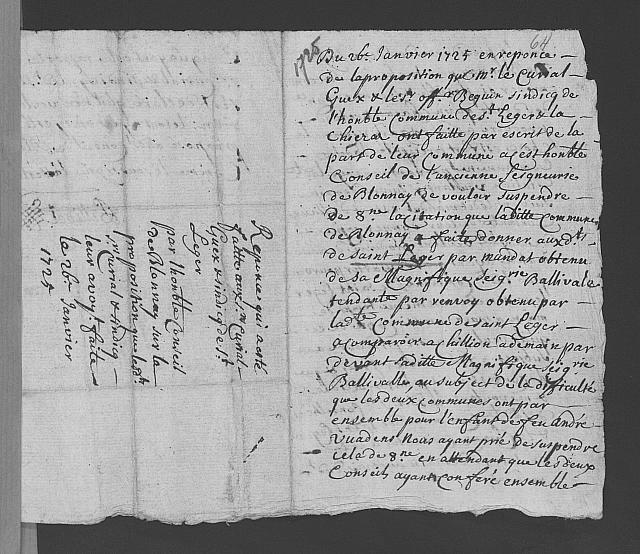 64
1725
Du 26e Janvier 1725 en reponce
de la proposition que mr. le Curial
Guex & le Sr. off. Beguin sindicq de
l'honble commune de St. Leger & la
Chiera ont faitte par escrit de la
part de leur commune a c'est honble
Conseil de l'ancienne Seigneurie
de Blonnay de vouloir suspendre
de 8ne la citation que la ditte commune
de Blonnay a faitte donner aux dts
de saint Leger par mandat obtenu
de sa Magnifique Seigrie Ballivale
tendante par renvoy obtenu par
la dte commune de saint Leger
a comparoir a Chillion a demain par
devant sa ditte Magnifique Seigrie
Ballivalle au subject de la difficulté
que les deux communes ont par
ensemble pour l'enfant de feu André
Vuadens Nous ayant prié de suspendre
cela de 8ne en attendant que les deux
Conseils ayant conferé ensemble
Reponce qui a esté
faitte aux Srs Curial
Guex & sindicq de St.
Leger
par l'honble Conseil
de Blonnay sur la
proposition que les dts
Srs Curial & sindicq
leur avoyt faite
le 26e Janvier
1725